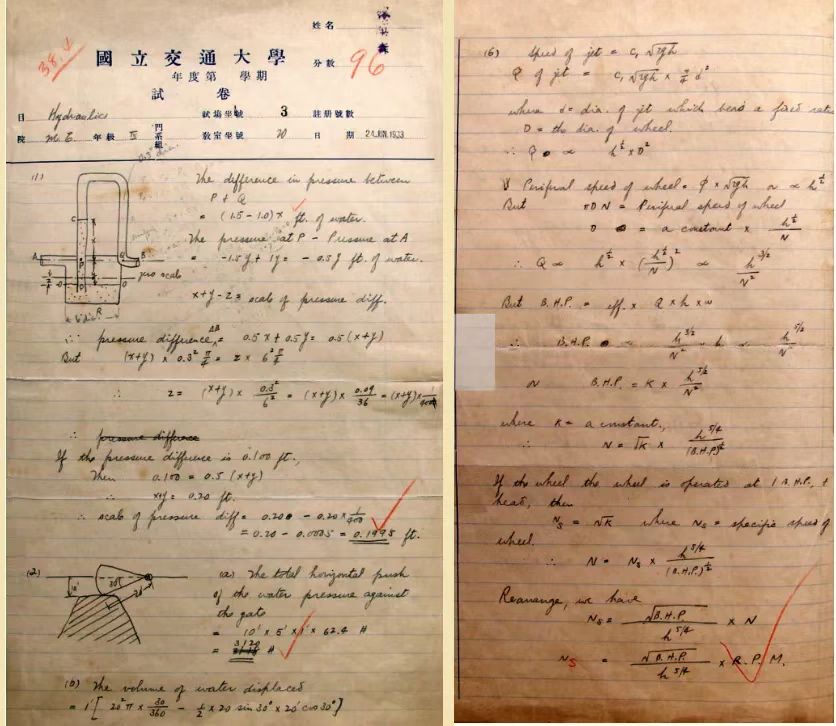 姓名
國立交通大學
年度第 學期
分數
96
38.4
試卷
目 Hydraulics 試場坐號 3 註冊號數
院 M.E. 年級 IV 門系組 教室坐號 20 日期 24 JUN. 1933
(1)
The difference in pressure between
P & Q
= (1.5 - 1.0)x ft. of water.
The pressure at P - Pressure at A
= -1.5y + 1y = -0.5y ft. of water.
zero scale
x+y-z = scale of pressure diff.
∴ pressure difference AB = 0.5x + 0.5y = 0.5(x+y)
But (x+y) × 0.3² π/4 = z × 6² π/4
∴ z = (x+y) × 0.3²/6² = (x+y) × 0.09/36 = (x+y) × 1/400
∴ pressure difference
If the pressure difference is 0.100 ft.,
Then 0.100 = 0.5 (x+y)
∴ x+y = 0.20 ft.
∴ scale of pressure diff = 0.200 - 0.20 × 1/400
= 0.20 - 0.0005 = 0.1995 ft.
(2)
10'
30°
20'
(a) The total horizontal push
of the water pressure against
the gate
= 10' × 5' × 1' × 62.4 #
= 3120 #
(b) The volume of water displaced
= 1' [ 20² π × 30/360 - 1/2 × 20 sin 30° × 20' cos 30° ]
(6) Speed of jet = C₁ √2gh
Q of jet = C₁ √2gh × π/4 d²
where d = dia. of jet which bears a fixed
D = the dia. of wheel.
∴ Q ∝ h^½ × D²
Peripral speed of wheel = φ × √2gh or ∝ h^½
But πDN = Peripral speed of wheel
D = a constant × h^½/N
∴ Q ∝ h^½ × (h^½/N)² ∝ h^3/2/N²
But B.H.P. = eff. × Q × h × w
∴ B.H.P. ∝ h^3/2/N² · h ∝ h^5/2/N²
or B.H.P. = K × h^5/2/N²
where K = a constant,
∴ N = √K × h^5/4/(B.H.P.)^½
If the wheel the wheel is operated at 1 B.H.P.,
head, then
Ns = √K where Ns = specific speed of
wheel.
∴ N = Ns × h^5/4/(B.H.P.)^½
Rearrange, we have
Ns = √B.H.P./h^5/4 × N
Ns = √B.H.P./h^5/4 × R.P.M.